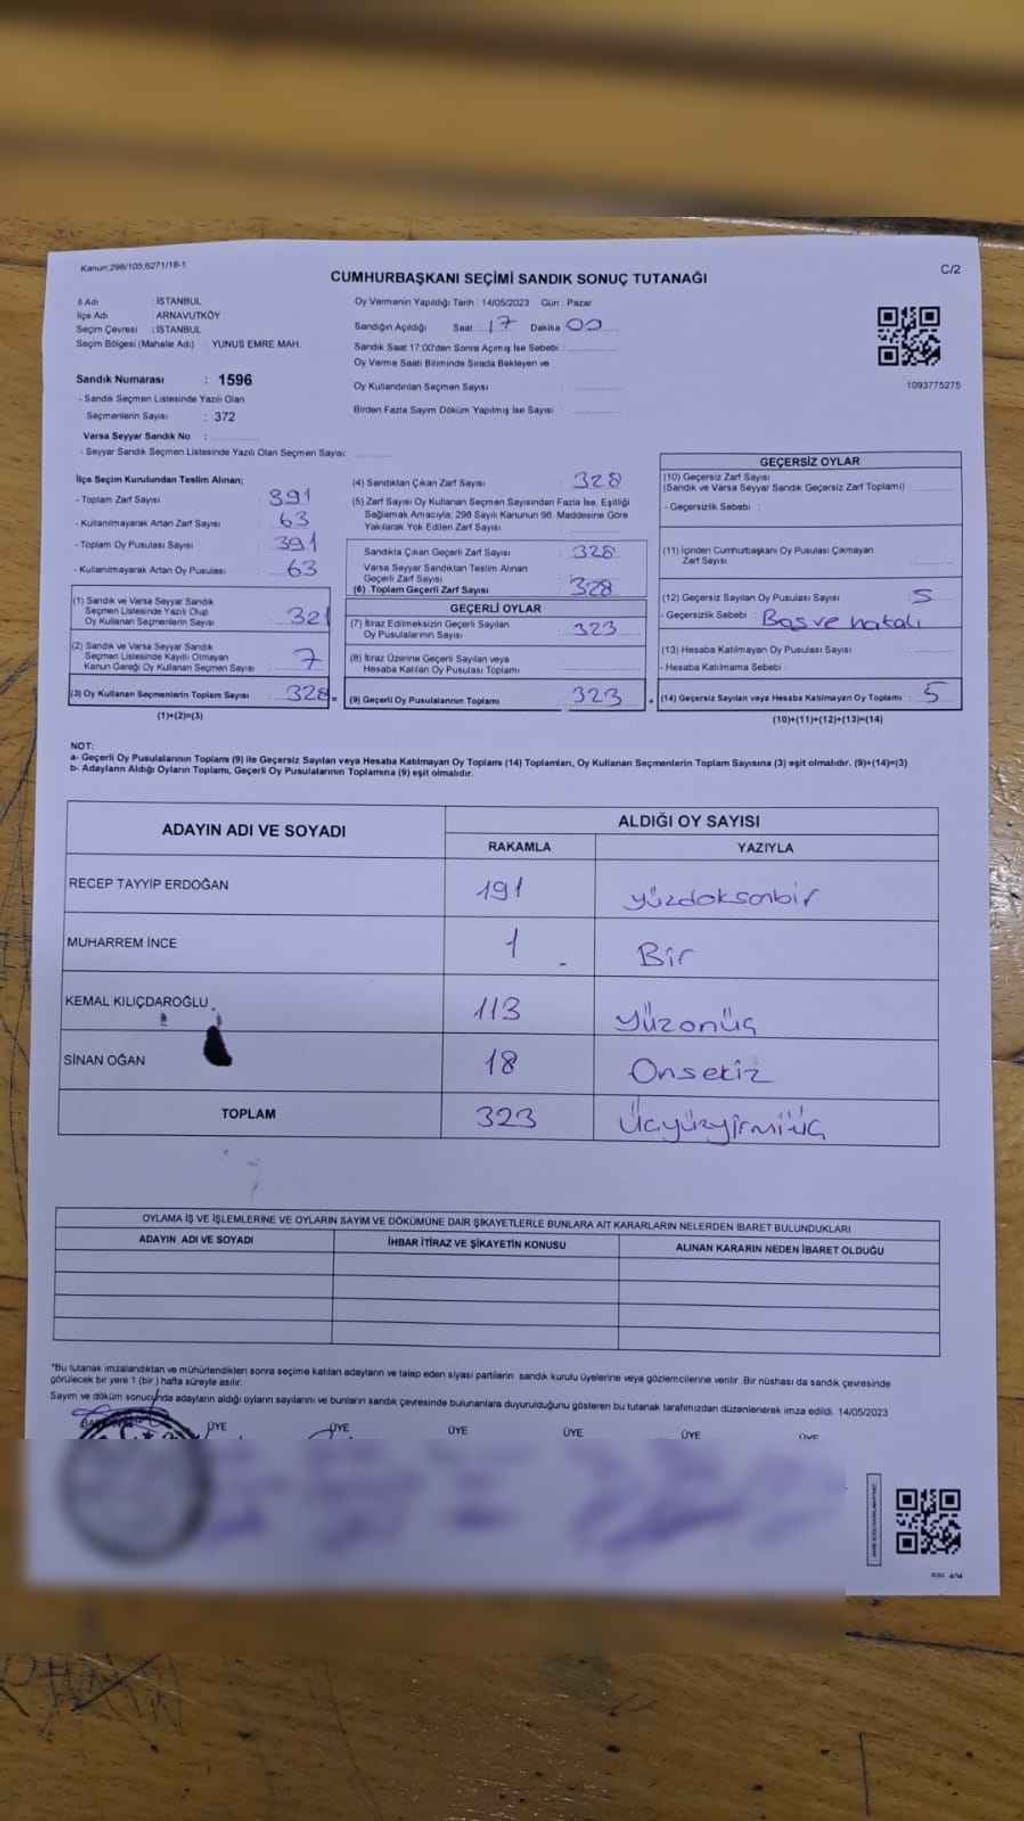 Kanun:298/105,6271/18-1
C/2
CUMHURBAŞKANI SEÇİMİ SANDIK SONUÇ TUTANAĞI
İl Adı İSTANBUL
İlçe Adı ARNAVUTKÖY
Seçim Çevresi : İSTANBUL
Seçim Bölgesi (Mahalle Adı) YUNUS EMRE MAH.
Sandık Numarası : 1596
- Sandık Seçmen Listesinde Yazılı Olan
Seçmenlerin Sayısı : 372
Varsa Seyyar Sandık No :
- Seyyar Sandık Seçmen Listesinde Yazılı Olan Seçmen Sayısı
Oy Vermenin Yapıldığı Tarih : 14/05/2023 Gün : Pazar
Sandığın Açıldığı Saat 17 Dakika 00
Sandık Saat 17:00'den Sonra Açılmış İse Sebebi :
Oy Verme Saati Bitiminde Sırada Bekleyen ve
Oy Kullandırılan Seçmen Sayısı
Birden Fazla Sayım Döküm Yapılmış İse Sayısı
1093775275
İlçe Seçim Kurulundan Teslim Alınan;
- Toplam Zarf Sayısı 391
- Kullanılmayarak Artan Zarf Sayısı 63
- Toplam Oy Pusulası Sayısı 391
- Kullanılmayarak Artan Oy Pusulası 63
(1) Sandık ve Varsa Seyyar Sandık
Seçmen Listesinde Yazılı Olup
Oy Kullanan Seçmenlerin Sayısı 321
(2) Sandık ve Varsa Seyyar Sandık
Seçmen Listesinde Kayıtlı Olmayan
Kanun Gereği Oy Kullanan Seçmen Sayısı 7
(3) Oy Kullanan Seçmenlerin Toplam Sayısı 328 =
(1)+(2)=(3)
(4) Sandıktan Çıkan Zarf Sayısı 328
(5) Zarf Sayısı Oy Kullanan Seçmen Sayısından Fazla İse, Eşitliği
Sağlamak Amacıyla, 298 Sayılı Kanunun 98. Maddesine Göre
Yakılarak Yok Edilen Zarf Sayısı
Sandıkta Çıkan Geçerli Zarf Sayısı 328
Varsa Seyyar Sandıktan Teslim Alınan
Geçerli Zarf Sayısı
(6) Toplam Geçerli Zarf Sayısı 328
GEÇERLİ OYLAR
(7) İtiraz Edilmeksizin Geçerli Sayılan
Oy Pusulalarının Sayısı 323
(8) İtiraz Üzerine Geçerli Sayılan veya
Hesaba Katılan Oy Pusulası Toplamı
(9) Geçerli Oy Pusulalarının Toplamı 323 +
GEÇERSİZ OYLAR
(10) Geçersiz Zarf Sayısı
(Sandık ve Varsa Seyyar Sandık Geçersiz Zarf Toplamı)
- Geçersizlik Sebebi :
(11) İçinden Cumhurbaşkanı Oy Pusulası Çıkmayan
Zarf Sayısı
(12) Geçersiz Sayılan Oy Pusulası Sayısı 5
- Geçersizlik Sebebi : Boş ve hatalı
(13) Hesaba Katılmayan Oy Pusulası Sayısı
- Hesaba Katılmama Sebebi
(14) Geçersiz Sayılan veya Hesaba Katılmayan Oy Toplamı : 5
(10)+(11)+(12)+(13)=(14)
NOT:
a- Geçerli Oy Pusulalarının Toplamı (9) ile Geçersiz Sayılan veya Hesaba Katılmayan Oy Toplamı (14) Toplamları, Oy Kullanan Seçmenlerin Toplam Sayısına (3) eşit olmalıdır. (9)+(14)=(3)
b- Adayların Aldığı Oyların Toplamı, Geçerli Oy Pusulalarının Toplamına (9) eşit olmalıdır.
ADAYIN ADI VE SOYADI
ALDIĞI OY SAYISI
RAKAMLA YAZIYLA
RECEP TAYYİP ERDOĞAN 191 yüzdoksanbir
MUHARREM İNCE 1 Bir
KEMAL KILIÇDAROĞLU 113 yüzonüç
SİNAN OĞAN 18 Onsekiz
TOPLAM 323 Üçyüzyirmiüç
OYLAMA İŞ VE İŞLEMLERİNE VE OYLARIN SAYIM VE DÖKÜMÜNE DAİR ŞİKAYETLERLE BUNLARA AİT KARARLARIN NELERDEN İBARET BULUNDUKLARI
ADAYIN ADI VE SOYADI İHBAR İTİRAZ VE ŞİKAYETİN KONUSU ALINAN KARARIN NEDEN İBARET OLDUĞU
"Bu tutanak imzalandıktan ve mühürlendikten sonra seçime katılan adayların ve talep eden siyasi partilerin sandık kurulu üyelerine veya gözlemcilerine verilir. Bir nüshası da sandık çevresinde
görülecek bir yere 1 (bir) hafta süreyle asılır.
Sayım ve döküm sonucunda adayların aldığı oyların sayılarını ve bunların sandık çevresinde bulunanlara duyurulduğunu gösteren bu tutanak tarafımızdan düzenlenerek imza edildi. 14/05/2023
ÜYE ÜYE ÜYE ÜYE ÜYE ÜYE